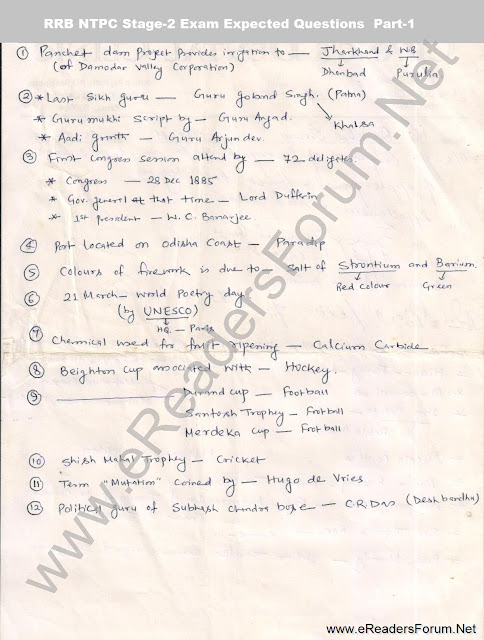 RRB NTPC Stage-2 Exam Expected Questions Part-1
① Panchet dam Project Provides irrigation to — Jharkhand & W.B
(of Damodar Valley Corporation)
Dhanbad Purulia
② * Last Sikh guru — Guru gobind Singh. (Patna)
* Gurumukhi Script by — Guru Angad.
Khalsa
* Aadi granth — Guru Arjun dev.
③ First Congress session attend by — 72 deligetes.
* Congress — 28 Dec 1885
* Gov. general at that time — Lord Dufferin
* 1st president — W.C. Banarjee
④ Port located on odisha Coast — Paradip
⑤ Colours of firework is due to — Salt of Strontium and Barium.
Red colour Green
⑥ 21 March — World Poetry day
(by UNESCO)
HQ. — Paris
⑦ Chemical used for fruit ripening — Calcium Carbide
⑧ Beighton cup associated with — Hockey.
⑨ Durand cup — Football
Santosh Trophy — Football
Merdeka cup — Football
⑩ Shish Mahal Trophy — Cricket
⑪ Term "Mutation" Coined by — Hugo de Vries
⑫ Political guru of Subhash Chandra bose — C.R. Das (Desh bandhu)
www.eReadersForum.Net
www.eReadersForum.Net